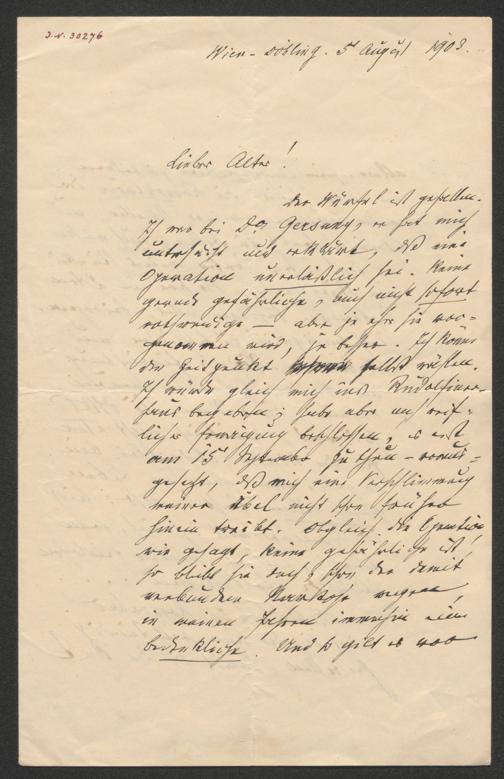 J.N. 30276
Wien-Döbling. 5t August 1903.
Lieber Alter!
Der Würfel ist gefallen.
Ich war bei Dor Gersuny, er hat mich
untersucht und erklärt, daß eine
Operation unerläßlich sei. Keine
gerade gefährliche, auch nicht sofort
nothwendige — aber je eher sie vor-
genommen wird, je besser. Ich könne
den Zeitpunkt selbst wählen.
Ich würde gleich mich ins Rudolfiner-
haus begeben; habe aber nach reif-
licher Erwägung beschlossen, es erst
am 15 September zu thun – voraus-
gesetzt, daß mich eine Verschlimmerung
meiner Übel nicht schon früher
hinein treibt. Obgleich die Operation
wie gesagt, keine gefährliche ist,
so bleibt sie doch, schon der damit
verbundenen Narkose wegen,
in meinen Jahren immerhin eine
bedenkliche. Und so gilt es vor